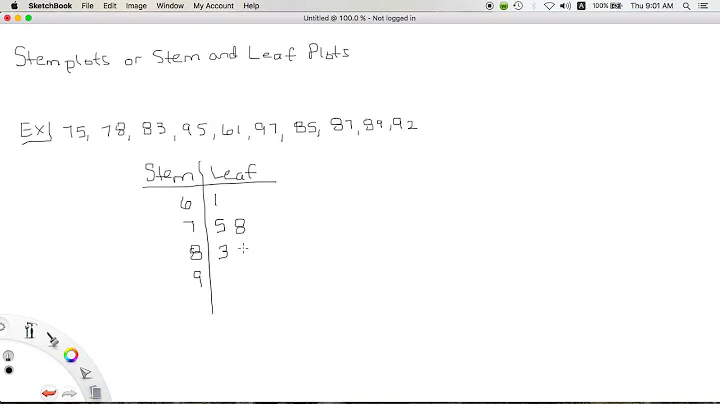 SketchBook File Edit Image Window My Account Help 100% Thu 9:01 AM
Untitled @ 100.0 % - Not logged in
Stemplots or Stem and Leaf Plots
Ex) 75, 78, 83, 95, 61, 97, 85, 87, 89, 92
Stem Leaf
6 1
7 5 8
8 3
9